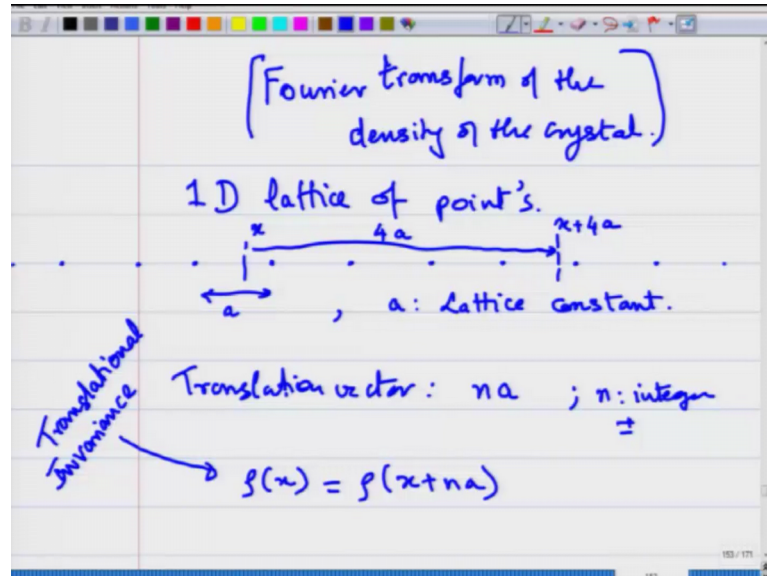 [Fourier transform of the
density of the crystal.]
1D lattice of point's.
x 4a x+4a
a , a: Lattice constant.
Translation vector: na ; n: integer
±
Translational
Invariance
ρ(x) = ρ(x+na)
153 / 171